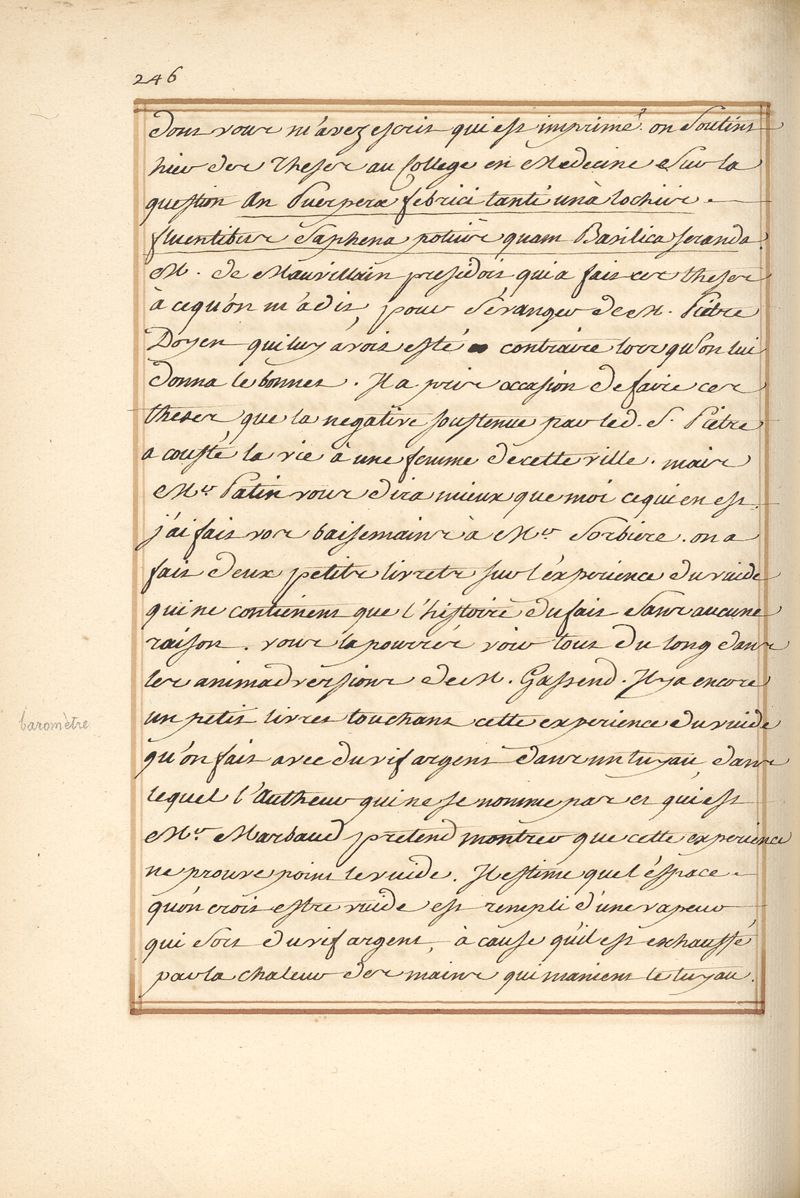 246
dont vous m'avez escrit qui est imprimé. on soutint
hier des Theses au College en Medecine sur la
question An Puerperæ febricitanti unà lochiis
fluentibus saphena potius quam Basilica secanda.
M. de Mauvillain presidoit qui a fait ces theses
à ce qu'on m'a dit, pour se vanger de M. Piètre
Doyen qui luy avoit esté contraire lors qu'on lui
donna le bonnet. Il a pris occasion de faire ces
theses que la negative soustenue par led. S. Piètre
a cousté la vie à une femme de cette ville. mais
Mr. Patin vous dira mieux que moi ce qui en est.
j'ai fait vos baisemains à Mr. Sorbiere. on a
fait deux petits livrets sur l'experience du vuide
qui ne contienent que l'histoire du fait sans aucune
raison. vous la pourrés voir tout du long dans
les animadversions de M. Gassend. Il y a encore
un petit livret touchant cette experience du vuide
baromètre
qu'on fait avec du vif argent dans un tuyau, dans
lequel l'Autheur qui ne se nomme pas et qui est
Mr. Marbaud pretend montrer que cette experience
ne prouve point le vuide. Il estime que l'éspace
qu'on croit estre vuide est rempli d'une vapeur
qui sort du vif argent, à cause qu'il est eschauffé
par la chaleur des mains qui manient le tuyau.